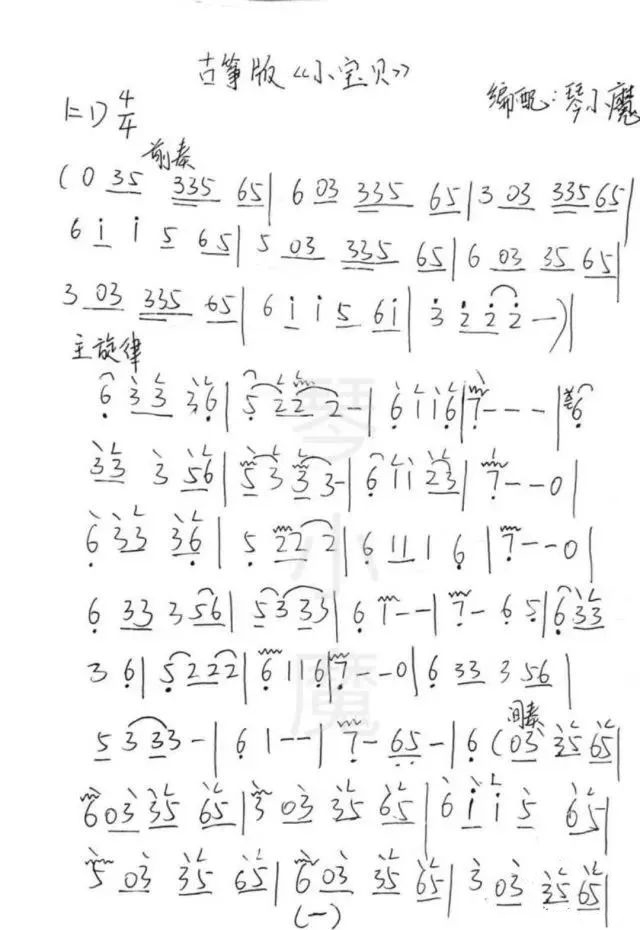 古筝版《小宝贝》
编配：琴小魔
1=D 4/4
前奏
(0 35 335 65| 6 03 335 65| 3 03 335 65|
6 i i 5 65| 5 03 335 65| 6 03 35 65|
3 03 335 65| 6 i i 5 6i| 3 2 2 2 —)|
主旋律
6 33 36| 5 22 2-| 6 11 6| 7---| 6
33 3 56| 5 3 3 3-| 6 11 23| 7--0|
6 33 36| 5 22 2| 6 11 1 6| 7--0|
6 33 3 56| 5 3 33| 6 1--| 7- 6 5| 6 33
3 6| 5 222| 6 11 6| 7--0| 6 33 3 56|
间奏
5 3 33-| 6 1--| 7- 65-| 6 (03 35 65|
6 03 35 65| 3 03 35 65| 6 i i 5 65|
5 03 35 65| 6 03 35 65| 3 03 35 65|
(一)
琴小魔